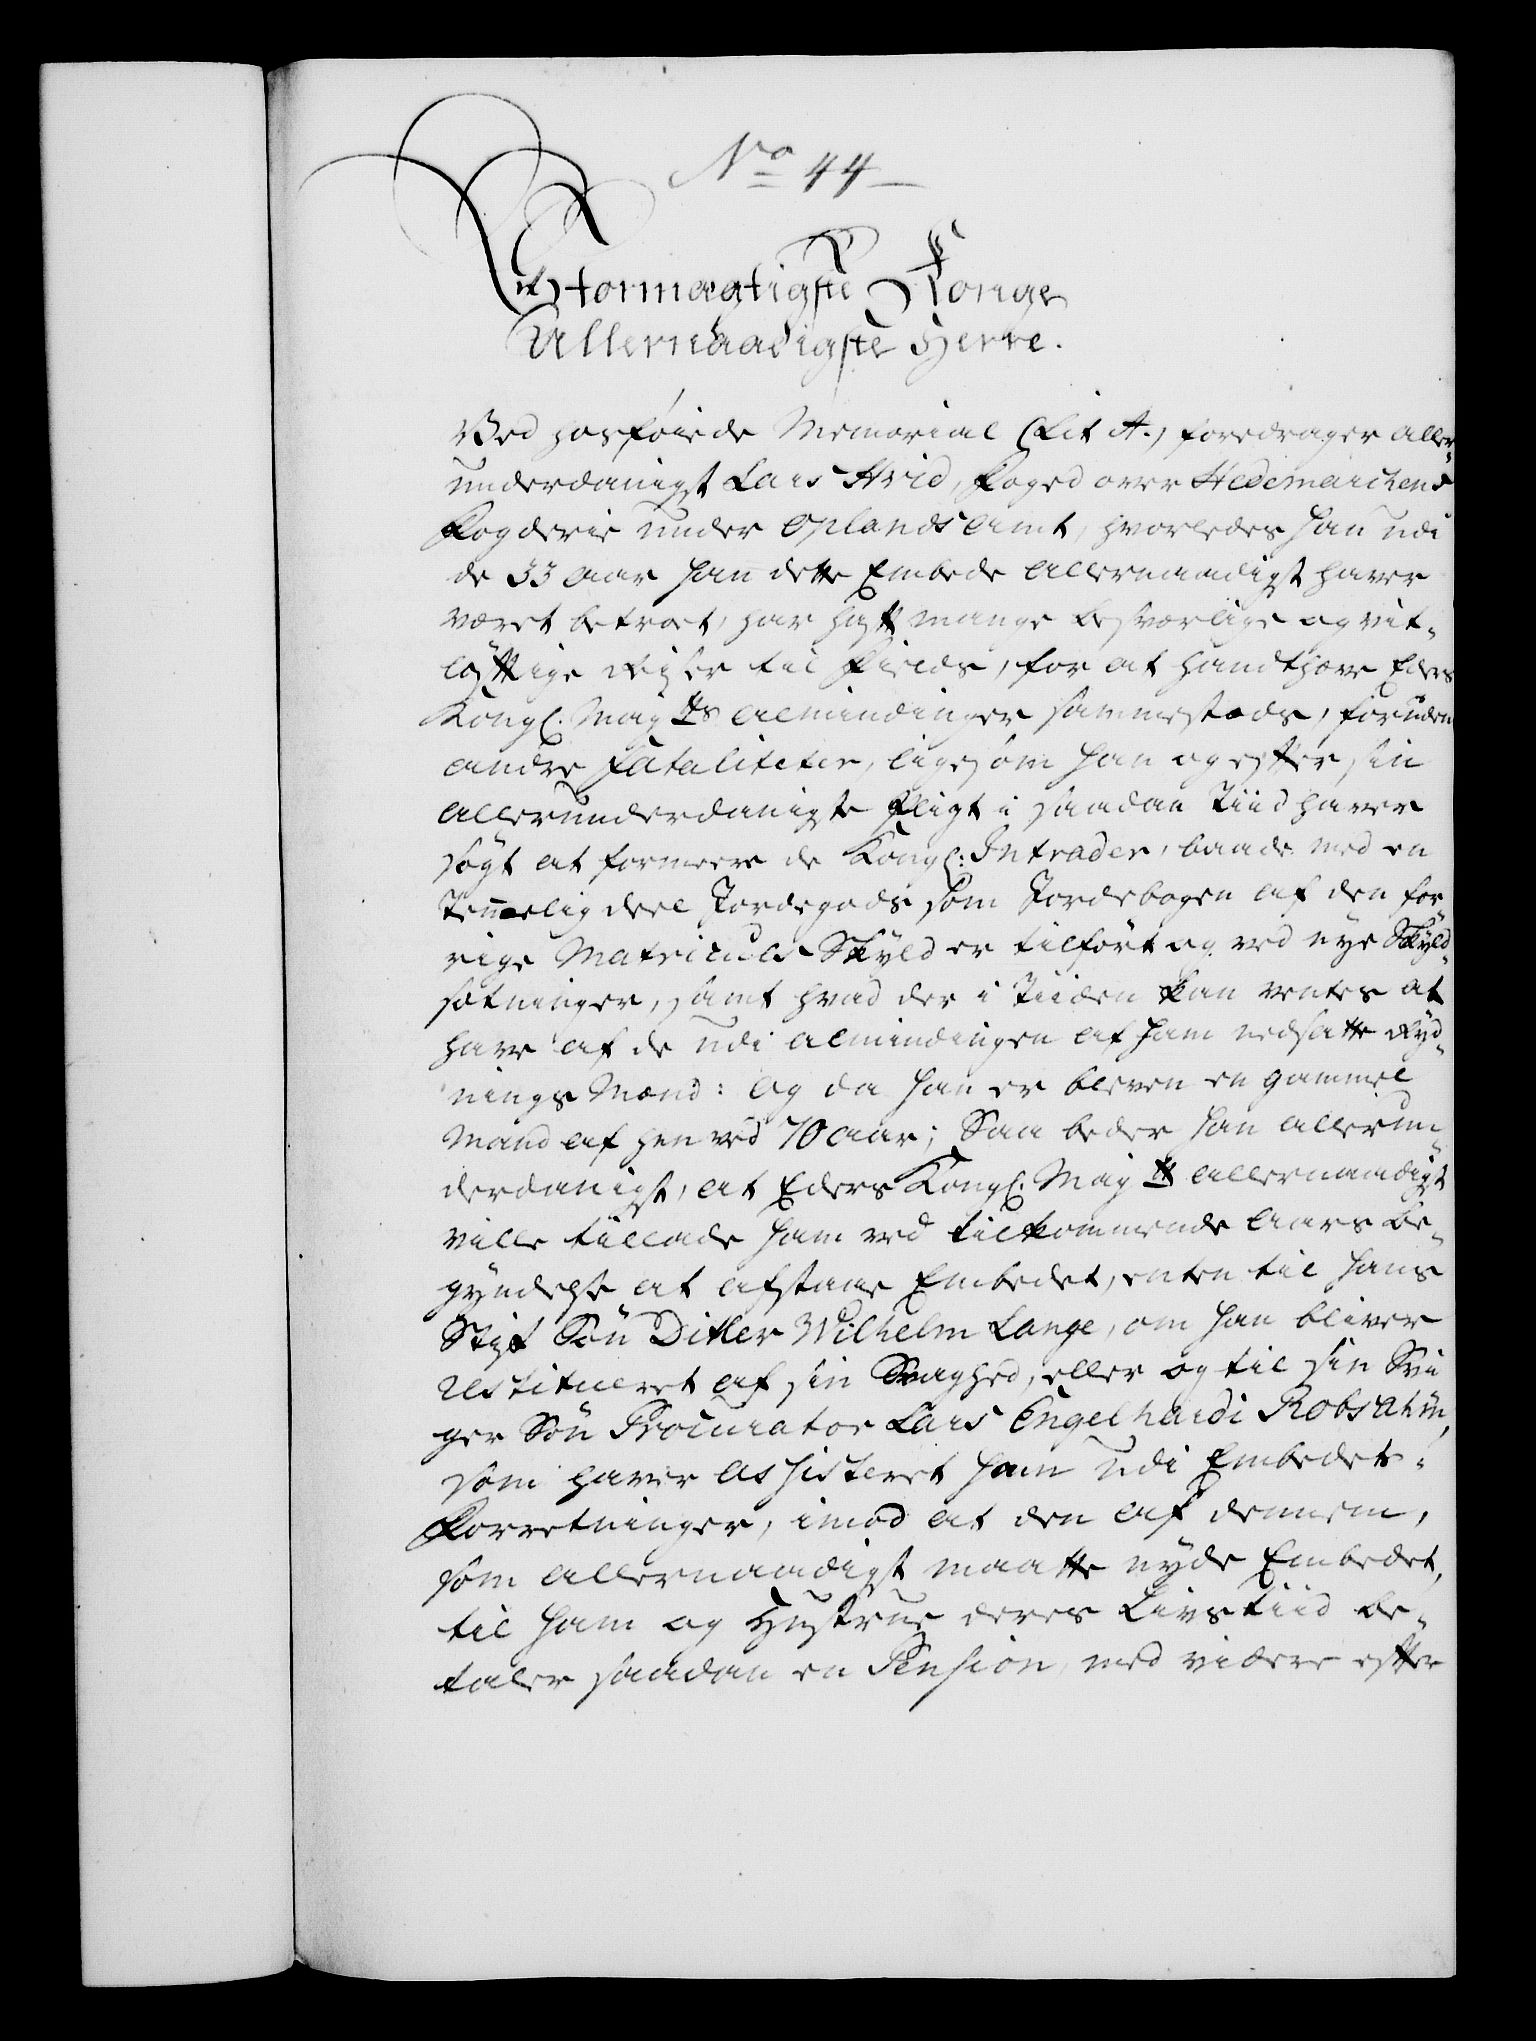 No 44
Stormægtigste Konge
Allernaadigste Herre.
Ved hosföiede Memorial (Lit A.) foredrager aller-
underdanigst Lars Hvid, Foged over Hedemarchens
Fogderie under Oplands Amt, hvorledes han udi
de 33 aar han dette Embede allernaadigst haver
været betroet, har hafft mange besværlige og vit-
löfftige Reyser til Fields, for at handthæve Eders
Kongl. Mayts Almindinger sammesteds, foruden
andre Fataliteter, ligesom han og effter sin
allerunderdanigste Pligt i saadan Tiid haver
sögt at formeere de Kongl: Intrader, baade med en
Temmelig deel Jordegods som Jordebogen af den for
rige Matriculs Skyld er tilfört og ved nye Skyld-
sætninger, samt hvad der i Tiiden kan ventes at
have af de udi Almindingen af ham nedsatte Ryd-
nings Mænd: Og da han er bleven en gammel
Mand af hen ved 70 aar; Saa beder han allerun-
derdanigst, at Eders Kongl. Mayt allernaadigst
ville tillade ham ved tilkommende Aars be-
gyndelse at afstaae Embedet, enten til hans
Stif Sön Ditler Wilhelm Lange, om han bliver
restitueret af sin Svaghed, eller og til sin Svi
ger Sön Procurator Lars Engelhardt Robsahm,
som haver assisteret ham udi Embedets
Forretninger, imod at den af dennem,
som allernaadigst maatte nyde Embedet,
til ham og Hustrue deres Livstiid be-
taler saadan en Pension, med videre effter